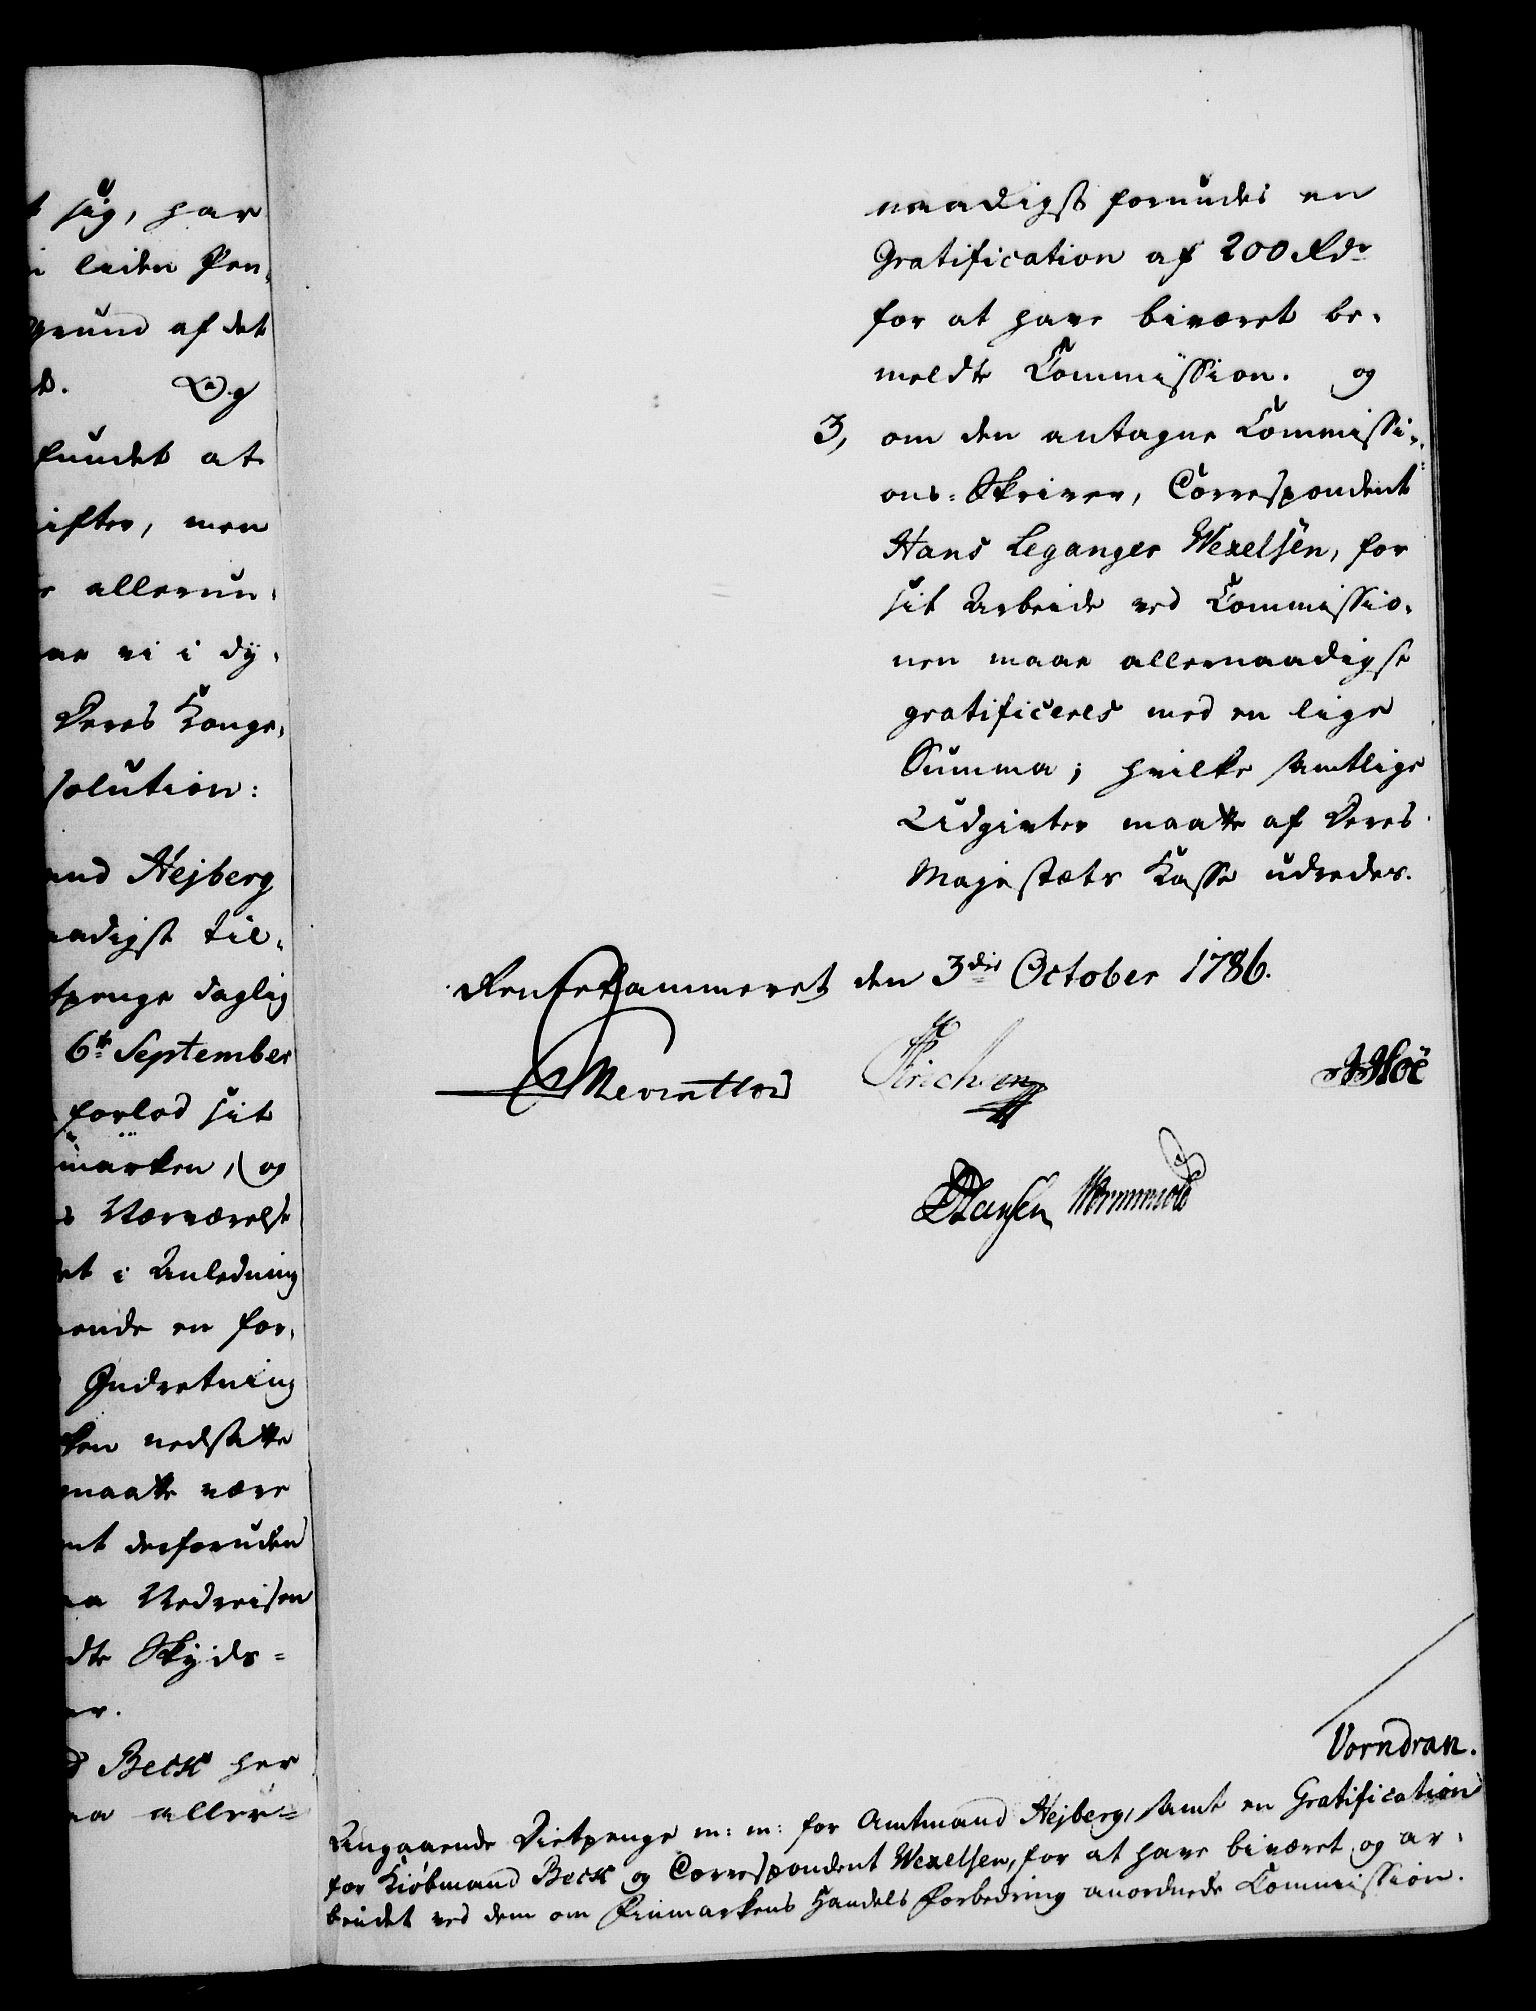 t sig, har
i liden Pen-
grund af det
d. Og
fundet at
ifter, men
e allerun-
ne vi i dÿ-
Deres Konge-
solution:
and Hejberg
aadigst til-
tpenge daglig
6te September
forlod sit
marken, og
s Nærværelse
et i Anledning
ende en for-
Indretning
ken nedsatte
maatte være
nt desforuden
aa Nedreisen
dte Skÿds-
er.
d Beck her
aa aller-
naadigst forundes en
Gratification af 200 Rdr
for at have biværet be-
meldte Commission. og
3, om den antagne Commissi-
ons-Skriver, Correspondent
Hans Leganger Wexelsen, for
sit Arbeide ved Commissio-
nen maae allernaadigst
gratificeres med en lige
Summa; hvilke samtlige
Udgivter maatte af Deres
Majestæts Kasse udredes.
Rentekammeret den 3die October 1786.
Reventlow
Hansen Wormskiold
Vorndran.
Angaaende Diætpenge m: m: for Amtmand Hejberg, samt en Gratification
for Kiöbmand Beck og Correspondent Wexelsen, for at have biværet og ar-
beidet ved dem om Finmarkens Handels Forbedring anordnede Commission.